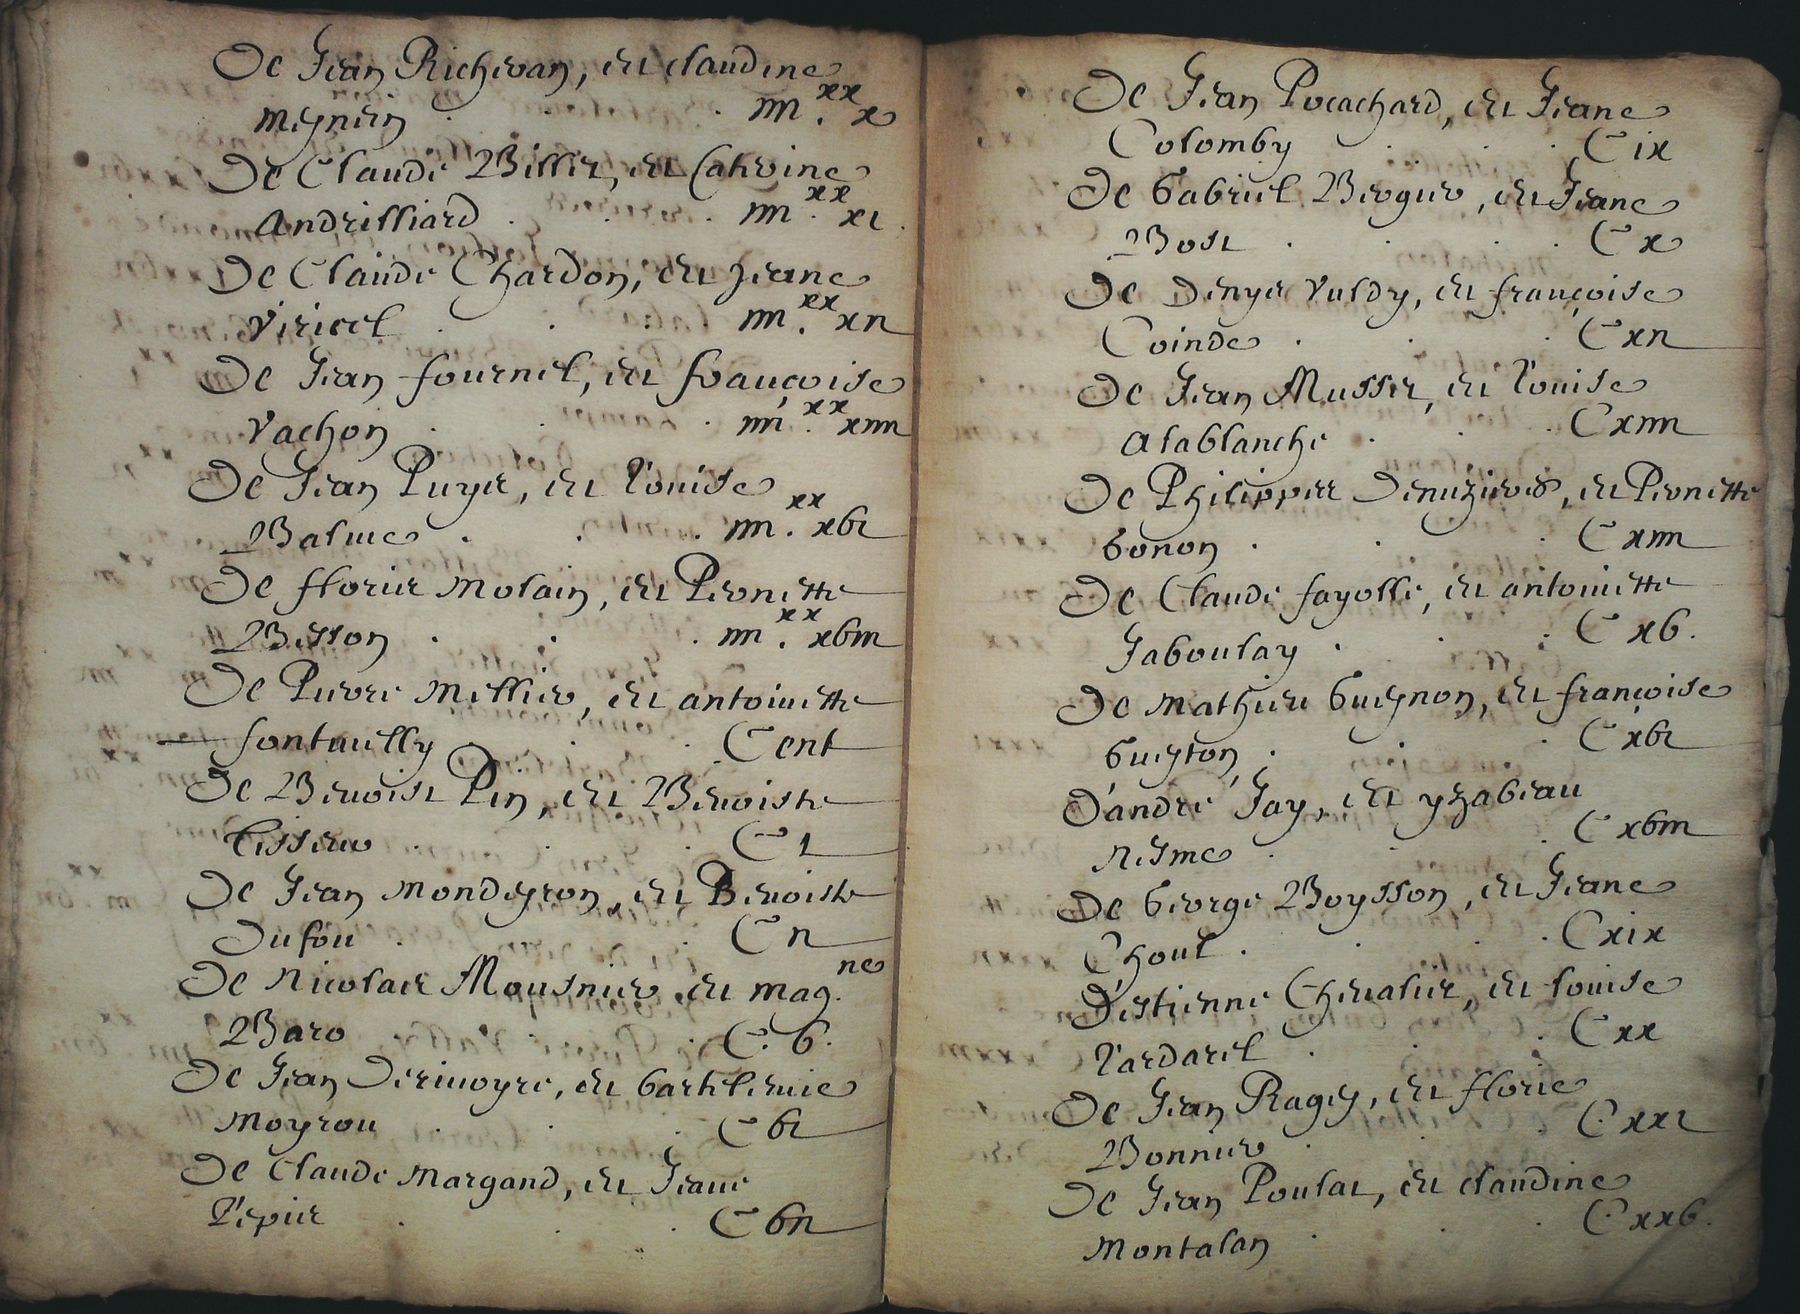 De Jean Richevan, et claudine
meynein . . . iiii.xx x
De Claude Billet, et Catrine
Andrilliard . . . iiii.xx xi.
De Claude Chardon, et Jeane
Viricel . . . iiii.xx xii
De Jean fournel, et françoise
Vachon . . . iiii.xx xiiii
De Jean Puyet, et Louise
Balme . . . iiii.xx xvi
De florir molain, et Pernette
Besson . . . iiii.xx xviii
De Pierre mellier, et antoinette
fontuielly . . . Cent
De Benoist Pin, et Benoiste
tisseur . . . Ci
De Jean mondeyron, et Benoiste
Dufou . . . Cii
De Nicolas Mousnier et mag.ne
Baro . . . C.v.
De Jean Derivoyre, et bartelemie
moyrou . . . Cvi
De Claude margand, et Jeane
Lepin . . . Cvii
De Jean Pocachard, et Jeane
Colomby . . . Cix
De Gabriel Bergier, et Jeane
Bost . . . Cx
De Denys Valdy, et françoise
Coinde . . . Cxii
De Jean Musset, et Louise
Alablanche . . . Cxiii
De Philippes Denuzieres, et Pernette
Gonon . . . Cxiiii
De Claude fayolle, et antoinette
Jaboulay . . . Cxv.
De mathieu Gueynon, et françoise
Gueyton . . . Cxvi
D'andré Jay, et yzabeau
Nesme . . . Cxviii
De George Boysson, et Jeane
Choul . . . Cxix
D'estienne Chevalier, et louise
Lardarel . . . Cxx
De Jean Ragey, et florie
Bonnier . . . Cxxi
De Jean Poulat, et claudine
Montalan . . . Cxxv.